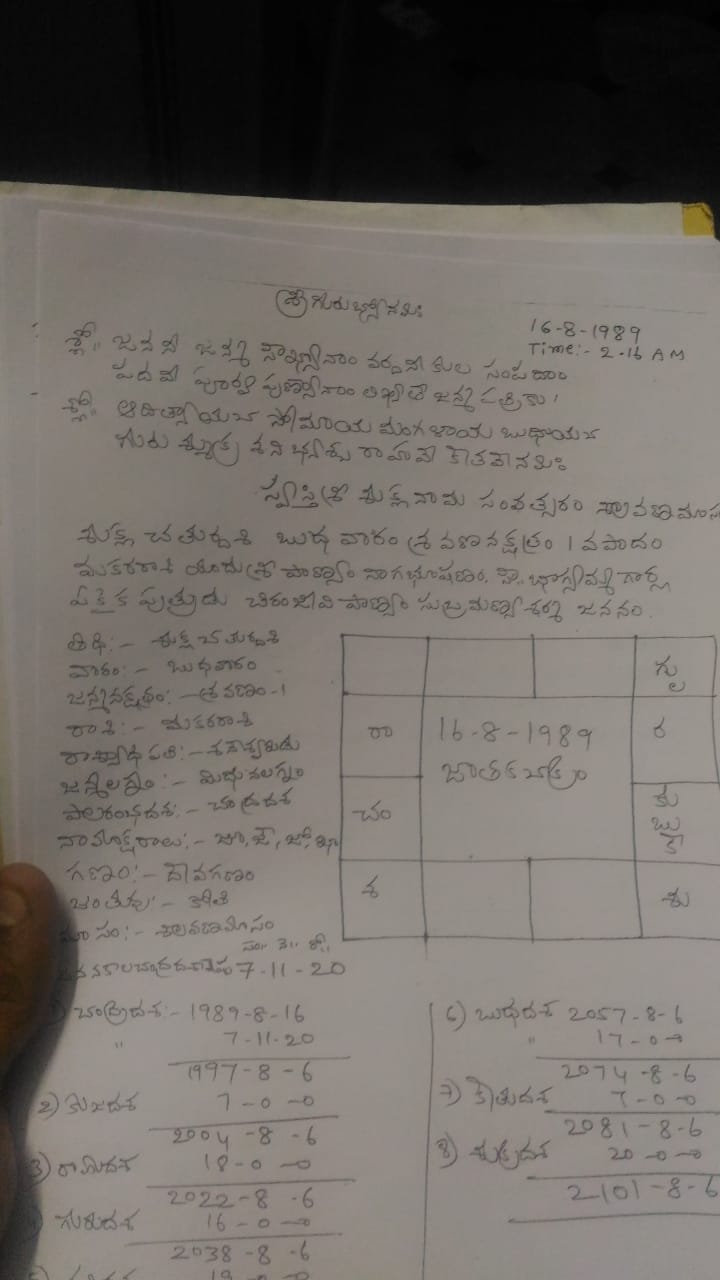 శ్రీ గురుభ్యోనమః
16-8-1989
Time:- 2-16 AM
శ్లో॥ జనని జన్మ సౌఖ్యానాం వర్ధని కుల సంపదాం
పదవి పూర్వ పుణ్యానాం లిఖ్యతే జన్మ పత్రికా।
శ్లో॥ ఆదిత్యాయచ సోమాయ మంగళాయ బుధాయచ
గురు శ్శుక్ర శని భ్యశ్చ రాహవే కేతవేనమః
స్వస్తిశ్రీ శుక్ల నామ సంవత్సరం శ్రావణమాస
శుక్ల చతుర్దశి బుధ వారం శ్రవణనక్షత్రం 1వపాదం
మకరరాశి యందు శ్రీ నాగభూషణం. గార్ల
ఏకైక పుత్రుడు చిరంజీవి సుబ్రమణ్యశర్మ జననం.
తిథి:- శుక్ల చతుర్దశి
వారం:- బుధవారం
జన్మనక్షత్రం:- శ్రవణం-1
రాశి:- మకరరాశి
రాశ్యాధిపతి:- శనీశ్వరుడు
జన్మలగ్నం:- మిథునలగ్నం
చంద్రదశ
నామాక్షరాలు:- జూ, జే, జో, ఖా
గణం:- దేవగణం
జంతువు:- కోతి
మాసం:- శ్రావణమాసం
7-11-20
గు
రా
16-8-1989
ర
జాతకచక్రం
చం
కు
బు
కే
శ
శు
1) చంద్రదశ:- 1989-8-16
" 7-11-20
1997-8-6
2) కుజదశ 7-0-0
2004-8-6
3) రాహుదశ 18-0-0
2022-8-6
గురుదశ 16-0-0
2038-8-6
19-0-0
6) బుధదశ 2057-8-6
" 17-0-0
2074-8-6
7) కేతుదశ 7-0-0
2081-8-6
8) శుక్రదశ 20-0-0
2101-8-6